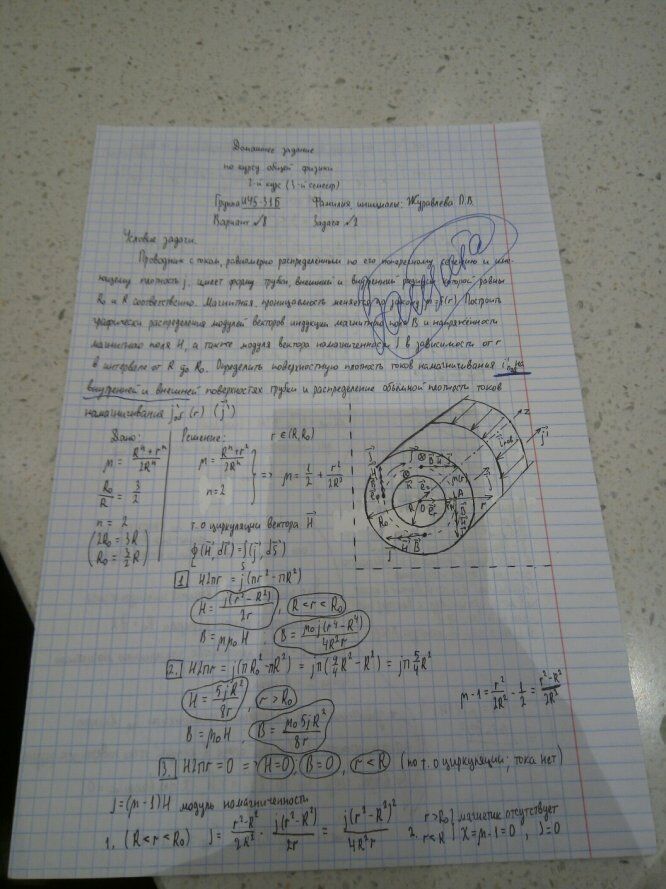 Домашнее задание
по курсу общей физики
2-й курс (3-й семестр)
Группа ИУ5-31Б Фамилия, инициалы: Журавлева П.В.
Вариант №8 Задача №2
Условие задачи.
Проводник с током, равномерно распределенным по его поперечному сечению и имеющему плотность j, имеет форму трубки, внешний и внутренний радиусы которой равны
R₀ и R соответственно. Магнитная проницаемость меняется по закону μ=f(r). Построить
графически распределения модулей векторов индукции магнитного поля B и напряжённости
магнитного поля H, а также модуля вектора намагниченности J в зависимости от r
в интервале от R до R₀. Определить поверхностную плотность токов намагничивания i'пов на
внутренней и внешней поверхностях трубки и распределение объёмной плотности токов
намагничивания j'об(r) (j')
Дано: Решение: r ∈ (R, R₀)
μ = (Rⁿ + rⁿ)/2Rⁿ
R₀/R = 3/2
n = 2
(2R₀ = 3R
R₀ = 3/2 R)
μ = (Rⁿ + rⁿ)/2Rⁿ
n=2
=> μ = 1/2 + r²/2R²
т. о циркуляции вектора H
∮(H, dl) = ∫(j, dS)
L S
1. H2πr = j(πr² - πR²)
H = j(r² - R²)/2r , R < r < R₀
B = μμ₀H , B = μ₀j(r⁴ - R⁴)/4R²r
2. H2πr = j(πR₀² - πR²) = jπ(9/4 R² - R²) = jπ 5/4 R²
H = 5jR²/8r , r > R₀
B = μ₀H , B = μ₀5jR²/8r
μ-1 = r²/2R² - 1/2 = (r² - R²)/2R²
3. H2πr = 0 => H=0 , B=0 , r < R (по т. о циркуляции; тока нет)
J = (μ-1)H модуль намагниченности
1. (R < r < R₀) J = (r² - R²)/2R² · j(r² - R²)/2r = j(r² - R²)²/4R²r
2. r > R₀ r < R } магнетик отсутствует χ = μ-1 = 0 , J=0